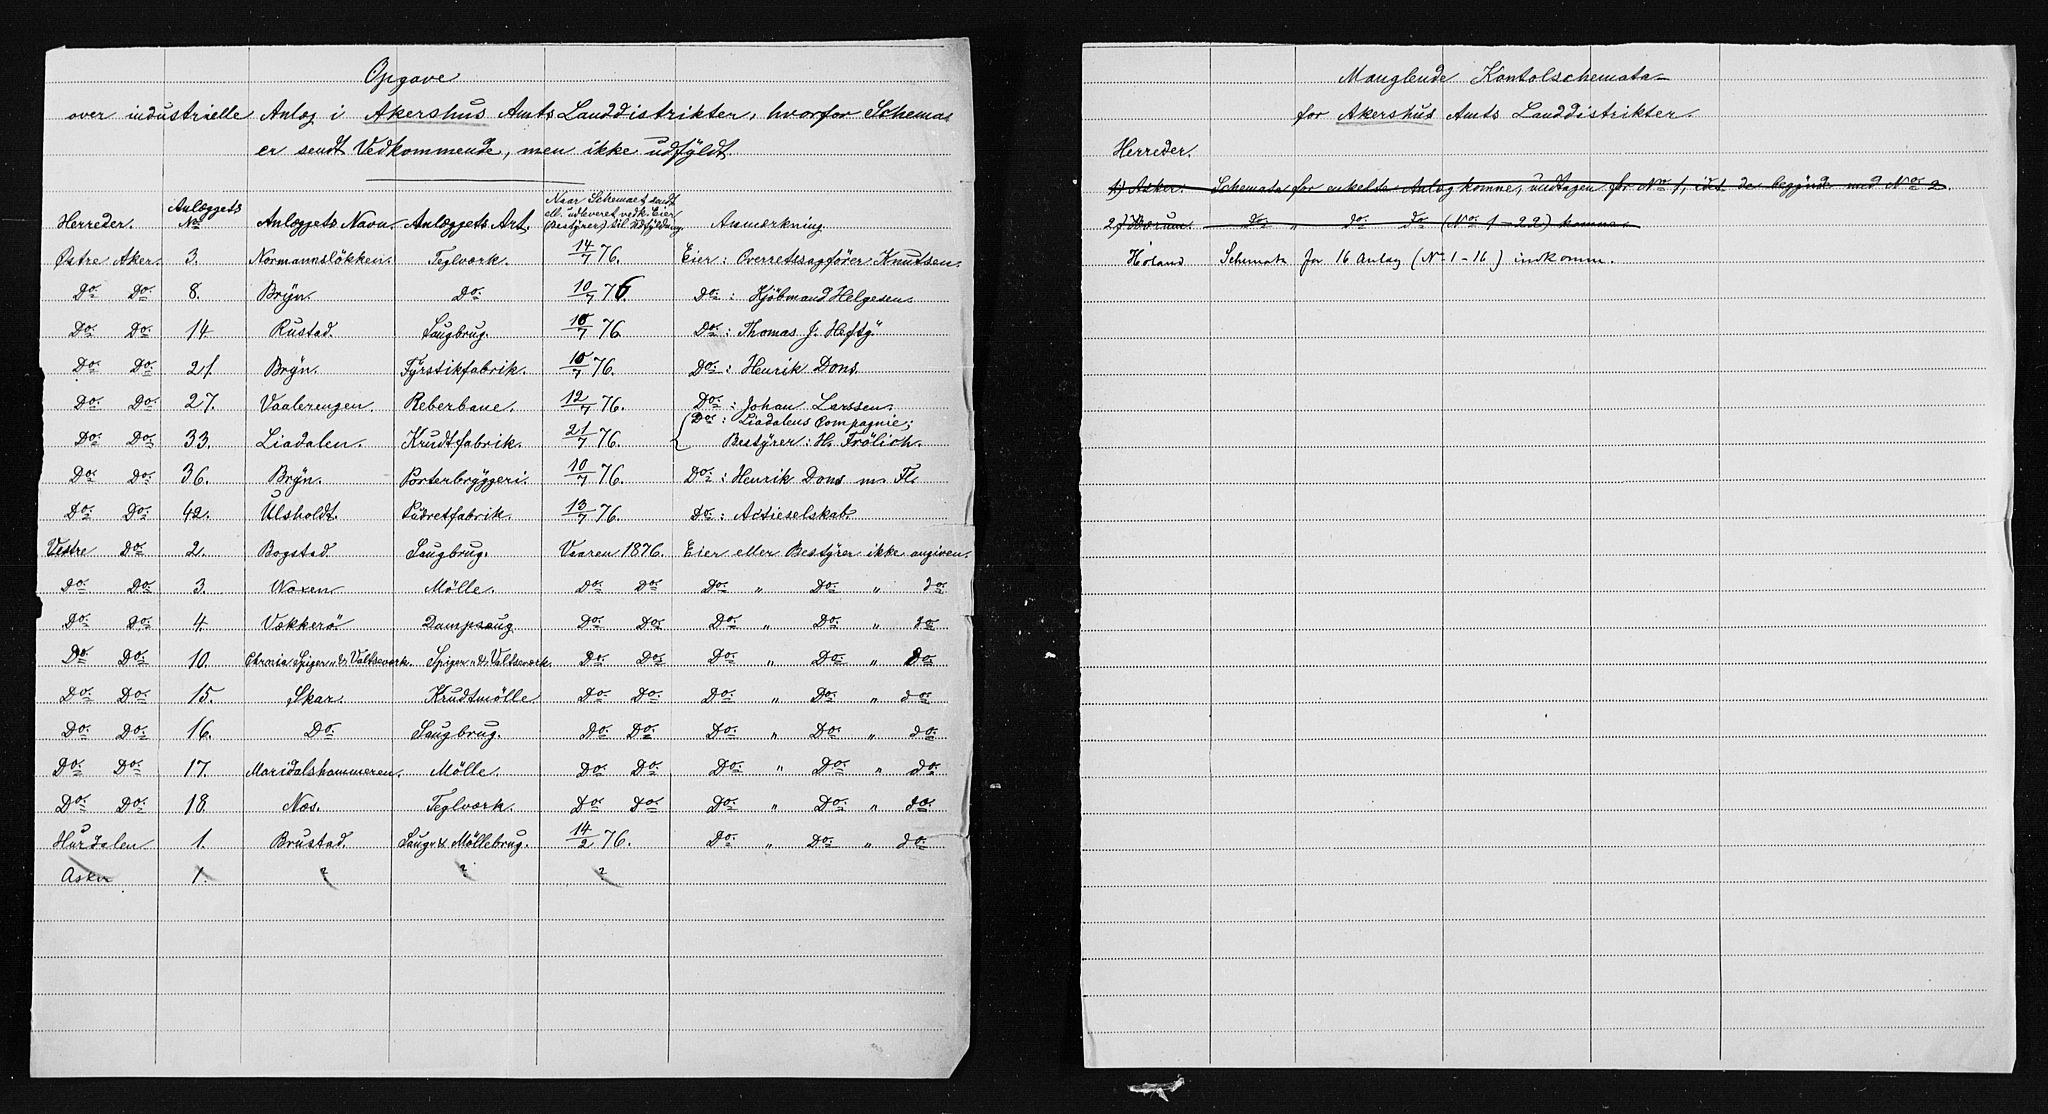 Opgave
over industrielle Anlæg i Akershus Amts Landdistrikter, hvorfor Schemas
er sendt Vedkommende, men ikke udfyldt.
Herreder. Anlæggets No Anlæggets Navn. Anlæggets Art. Naar Schemaet sendt ell. udleveret vedk. Eier (Bestÿrer) til Udfÿldning. Anmærkning.
Østre Aker. 3. Normannsløkken. Teglværk. 14/7 76. Eier: Overretssagfører Knutsen.
Do. Do. 8. Brÿn. Do. 10/7 76. Do.: Kjöbmand Helgesen.
Do. Do. 14 Rustad. Saugbrug. 10/7 76 Do.: Thomas J. Heftÿ
Do. Do. 21. Brÿn. Fÿrstikfabrik. 10/7 76. Do.: Henrik Dons.
Do. Do. 27. Vaalerengen. Reberbane. 12/7 76. Do.: Johan Larssen.
Do. Do. 33. Liadalen. Krudtfabrik. 21/7 76. Do.: Liadalens Compagnie; Bestÿrer: H. Frölich.
Do. Do. 36. Brÿn. Porterbrÿggeri. 10/7 76. Do.: Henrik Dons m. Fl.
Do. Do. 42. Ulsholdt. Pudretfabrik. 13/7 76. Do.: Actieselskab.
Vestre Do. 2. Bogstad. Saugbrug. Vaaren 1876. Eier eller Bestÿrer ikke angiven.
Do. Do. 3. Voxen. Mölle. Do. Do. Do. " Do. " do.
Do. Do. 4 Vækkerö Dampsaug Do. Do. Do. " Do. " do.
Do. Do. 10. Chrnia Spiger- & Valtseværk. Spiger- & Valtseværk. Do. Do. Do. " Do. " do.
Do. Do. 15. Skar. Krudtmölle Do. Do. Do. " Do. " do.
Do. Do. 16. Do. Saugbrug. Do. Do. Do. " Do. " do.
Do. Do. 17. Maridalshammeren. Mölle. Do. Do. Do. " Do. " do.
Do. Do. 18. Næs. Teglværk. Do. Do. Do. " Do. " do.
Hurdalen 1. Brustad. Saug- & Möllebrug. 14/2 76. Do. " Do. " do.
Asker 1. ? ? ?
Manglende Kontolschemata
for Akershus Amts Landdistrikter.
Herreder.
1) Asker. Schemata for enkelte Anlæg komne, undtagen for No. 1, idet de begynde med No. 2
2) Bærum. do. " do. do. (No. 1-22) komne.
Høland. Schemata for 16 Anlæg (No 1-16) indkomm.